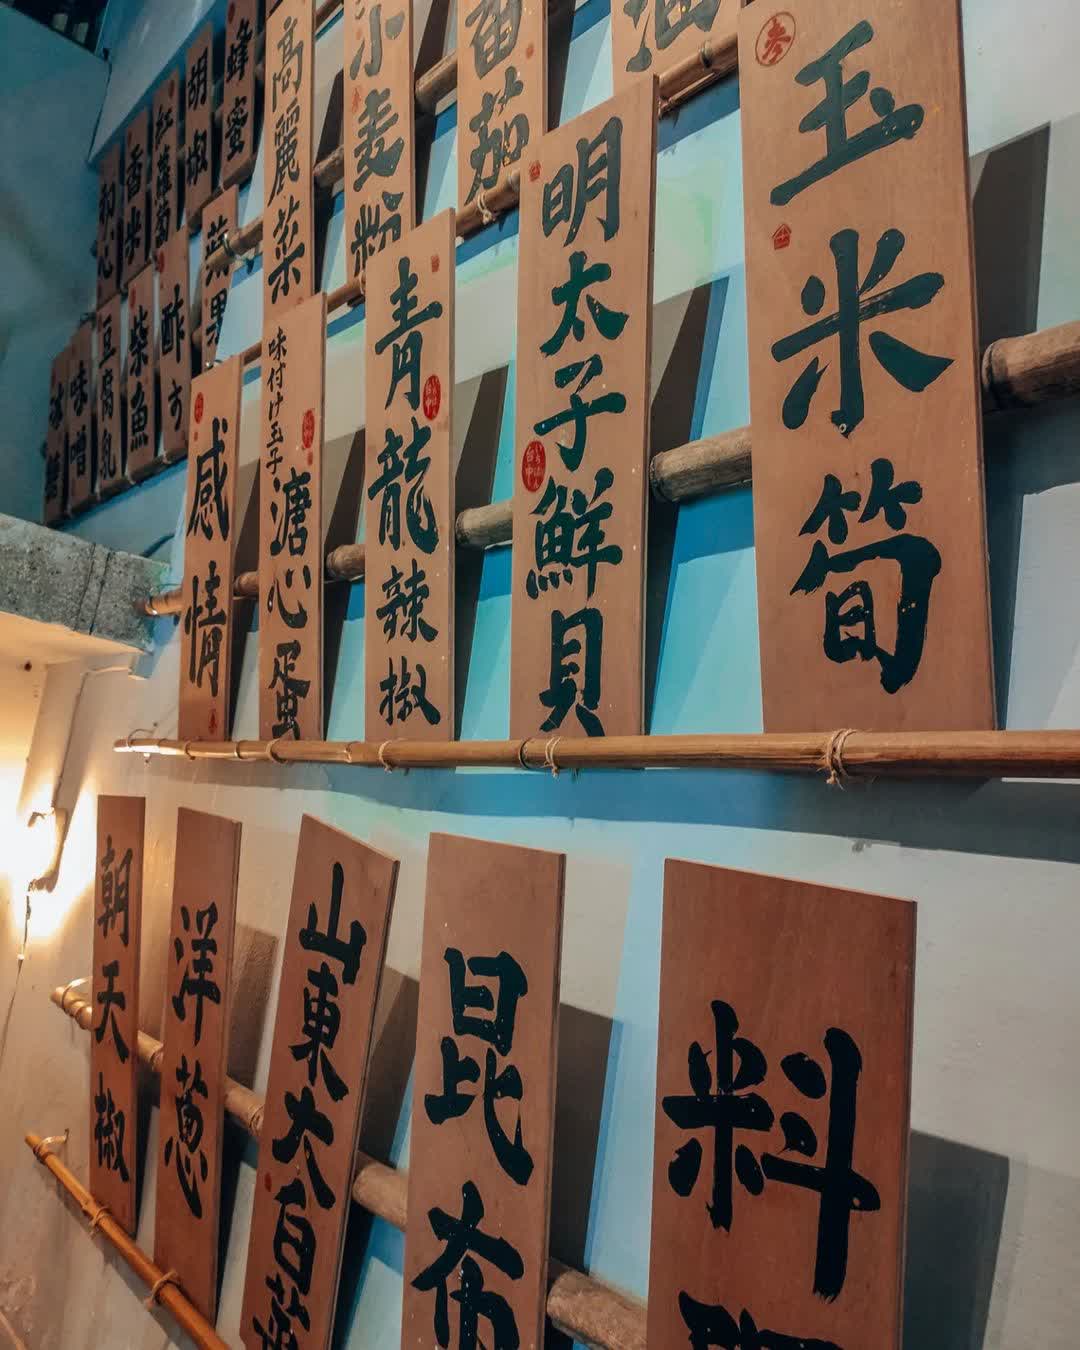 蜂蜜
胡椒
紅蘿蔔
香米
高麗菜
小麦粉
番茄
油
玉米筍
明太子鮮貝
青龍辣椒
味付け玉子
溏心蛋
感情
蘋果
酢す
柴魚
豆腐乳
味噌
朝天椒
洋蔥
山東大白菜
昆布
料